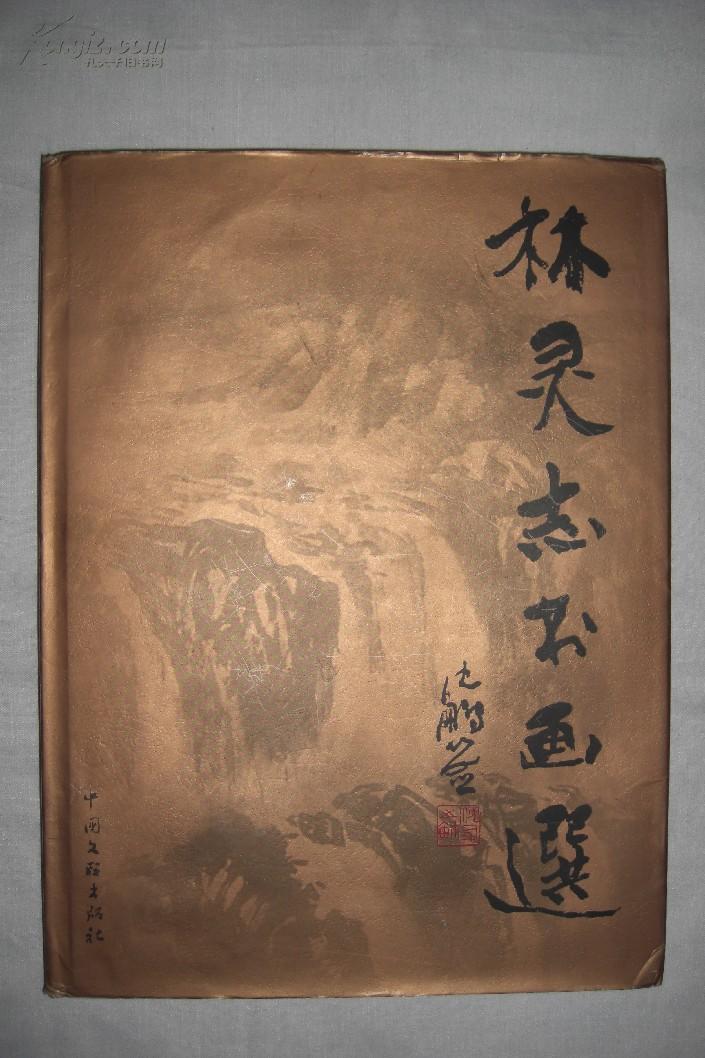 Kongfz.com
孔夫子旧书网
林灵志书画選
沈鹏签
中國文联出版社